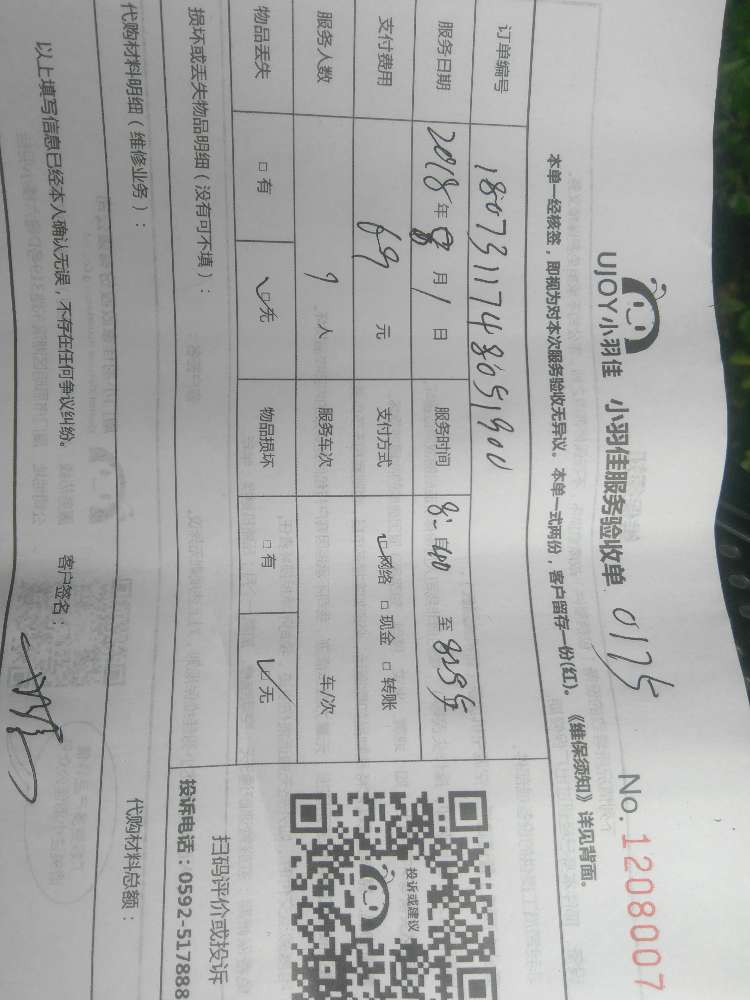 UJOY小羽佳 小羽佳服务验收单 0175 No.1208007
本单一经核签，即视为对本次服务验收无异议。本单一式两份，客户留存一份(红)。《维保须知》详见背面。
订单编号 1807311748051900
服务日期 2018年8月1日 服务时间 自 至
支付费用 69元 支付方式 网络 现金 转账
服务人数 1人 服务车次 车/次
物品丢失 有 无 物品损坏 有 无
损坏或丢失物品明细（没有可不填）：
代购材料明细（维修业务）： 代购材料总额：
以上填写信息已经本人确认无误，不存在任何争议纠纷。 客户签名：
投诉或建议
扫码评价或投诉
投诉电话：0592-517888